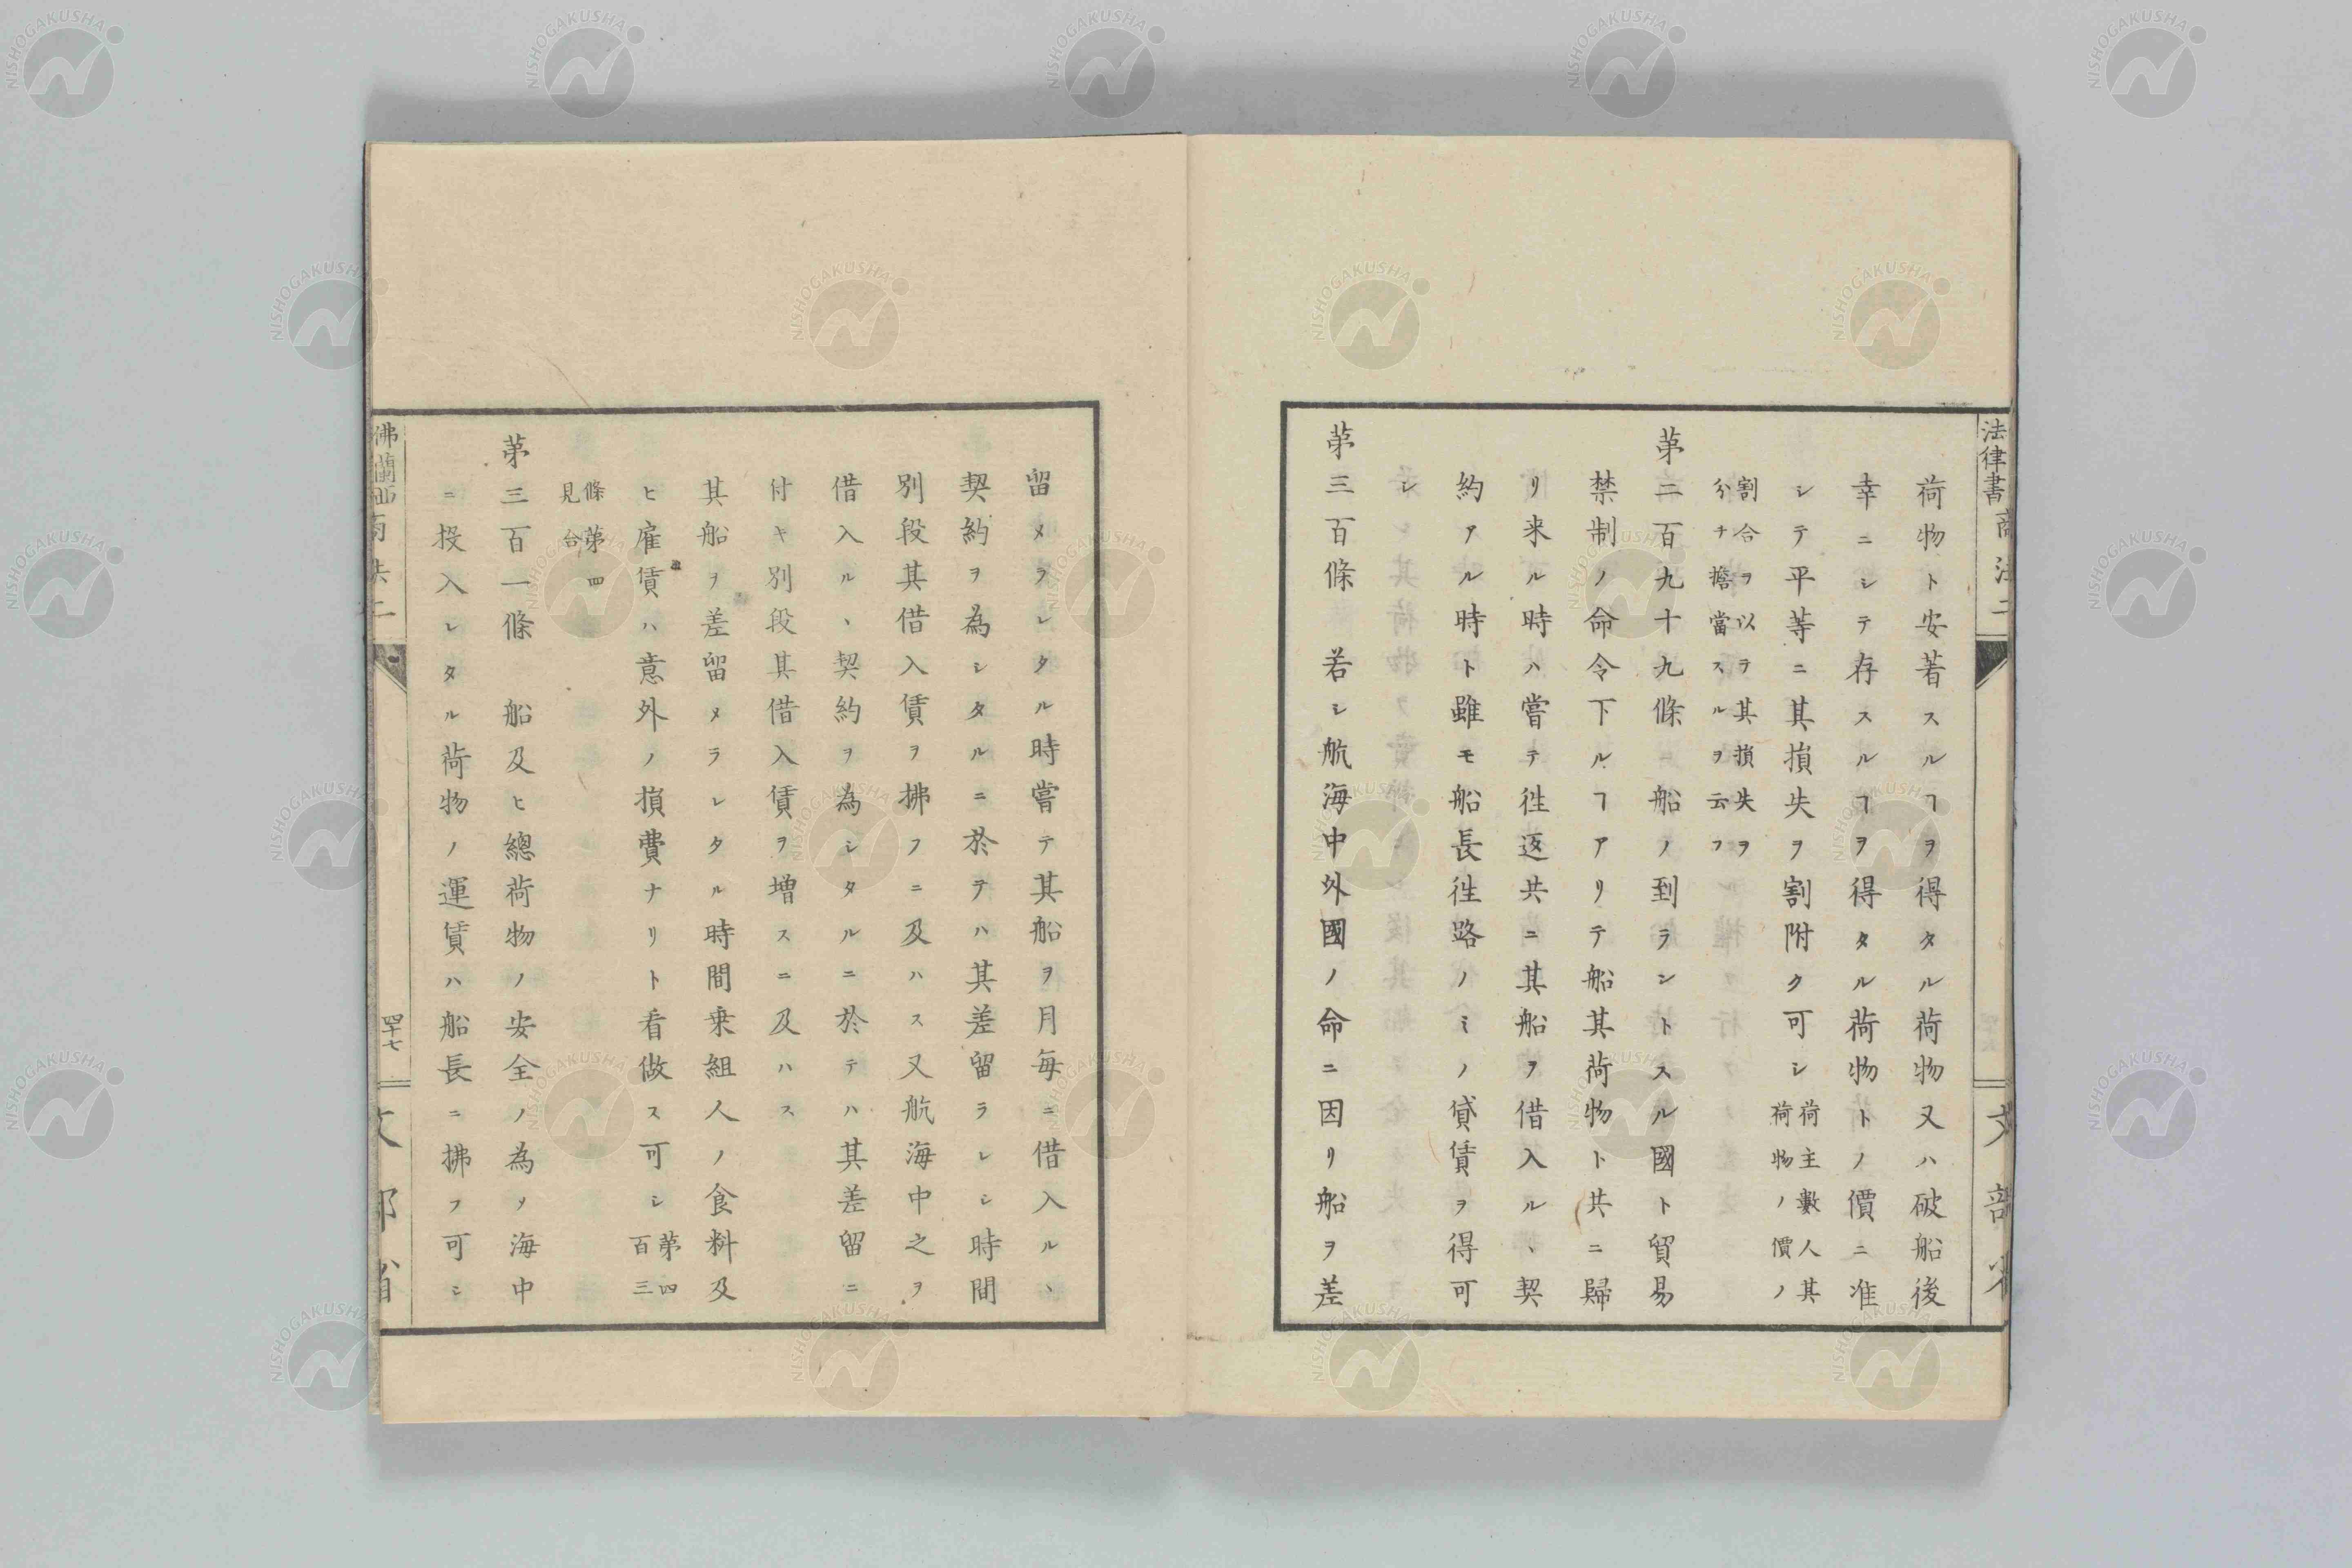 法律書 商法 二
荷物ト安着スルヿヲ得タル荷物又ハ破船後
幸ニシテ存スルヿヲ得タル荷物トノ價ニ准
シテ平等ニ其損失ヲ割附ク可シ荷主數人其荷物ノ價ノ
割合ヲ以テ其損失ヲ分チ擔當スルヲ云フ
第二百九十九條 船ノ到ラントスル國ト貿易
禁制ノ命令下ルヿアリテ船其荷物ト共ニ歸
リ來ル時ハ嘗テ徃返共ニ其船ヲ借入ル、契
約アル時ト雖モ船長徃路ノミノ貸賃ヲ得可
シ
第三百條 若シ航海中外國ノ命ニ因リ船ヲ差
文部省
留メラレタル時嘗テ其船ヲ月每ニ借入ル、
契約ヲ為シタルニ於テハ其差留ラレシ時間
別段其借入賃ヲ拂フニ及ハス又航海中之ヲ
借入ル、契約ヲ為シタルニ於テハ其差留ニ
付キ別段其借入賃ヲ增スニ及ハス
其船ヲ差留メラレタル時間乗組人ノ食料及
ヒ雇賃ハ意外ノ損費ナリト看做ス可シ第四百三
條第四見合
第三百一條 船及ヒ總荷物ノ安全ノ為メ海中
ニ投入レタル荷物ノ運賃ハ船長ニ拂フ可シ
佛蘭西商法二
四十七
文部省
NISHOGAKUSHA